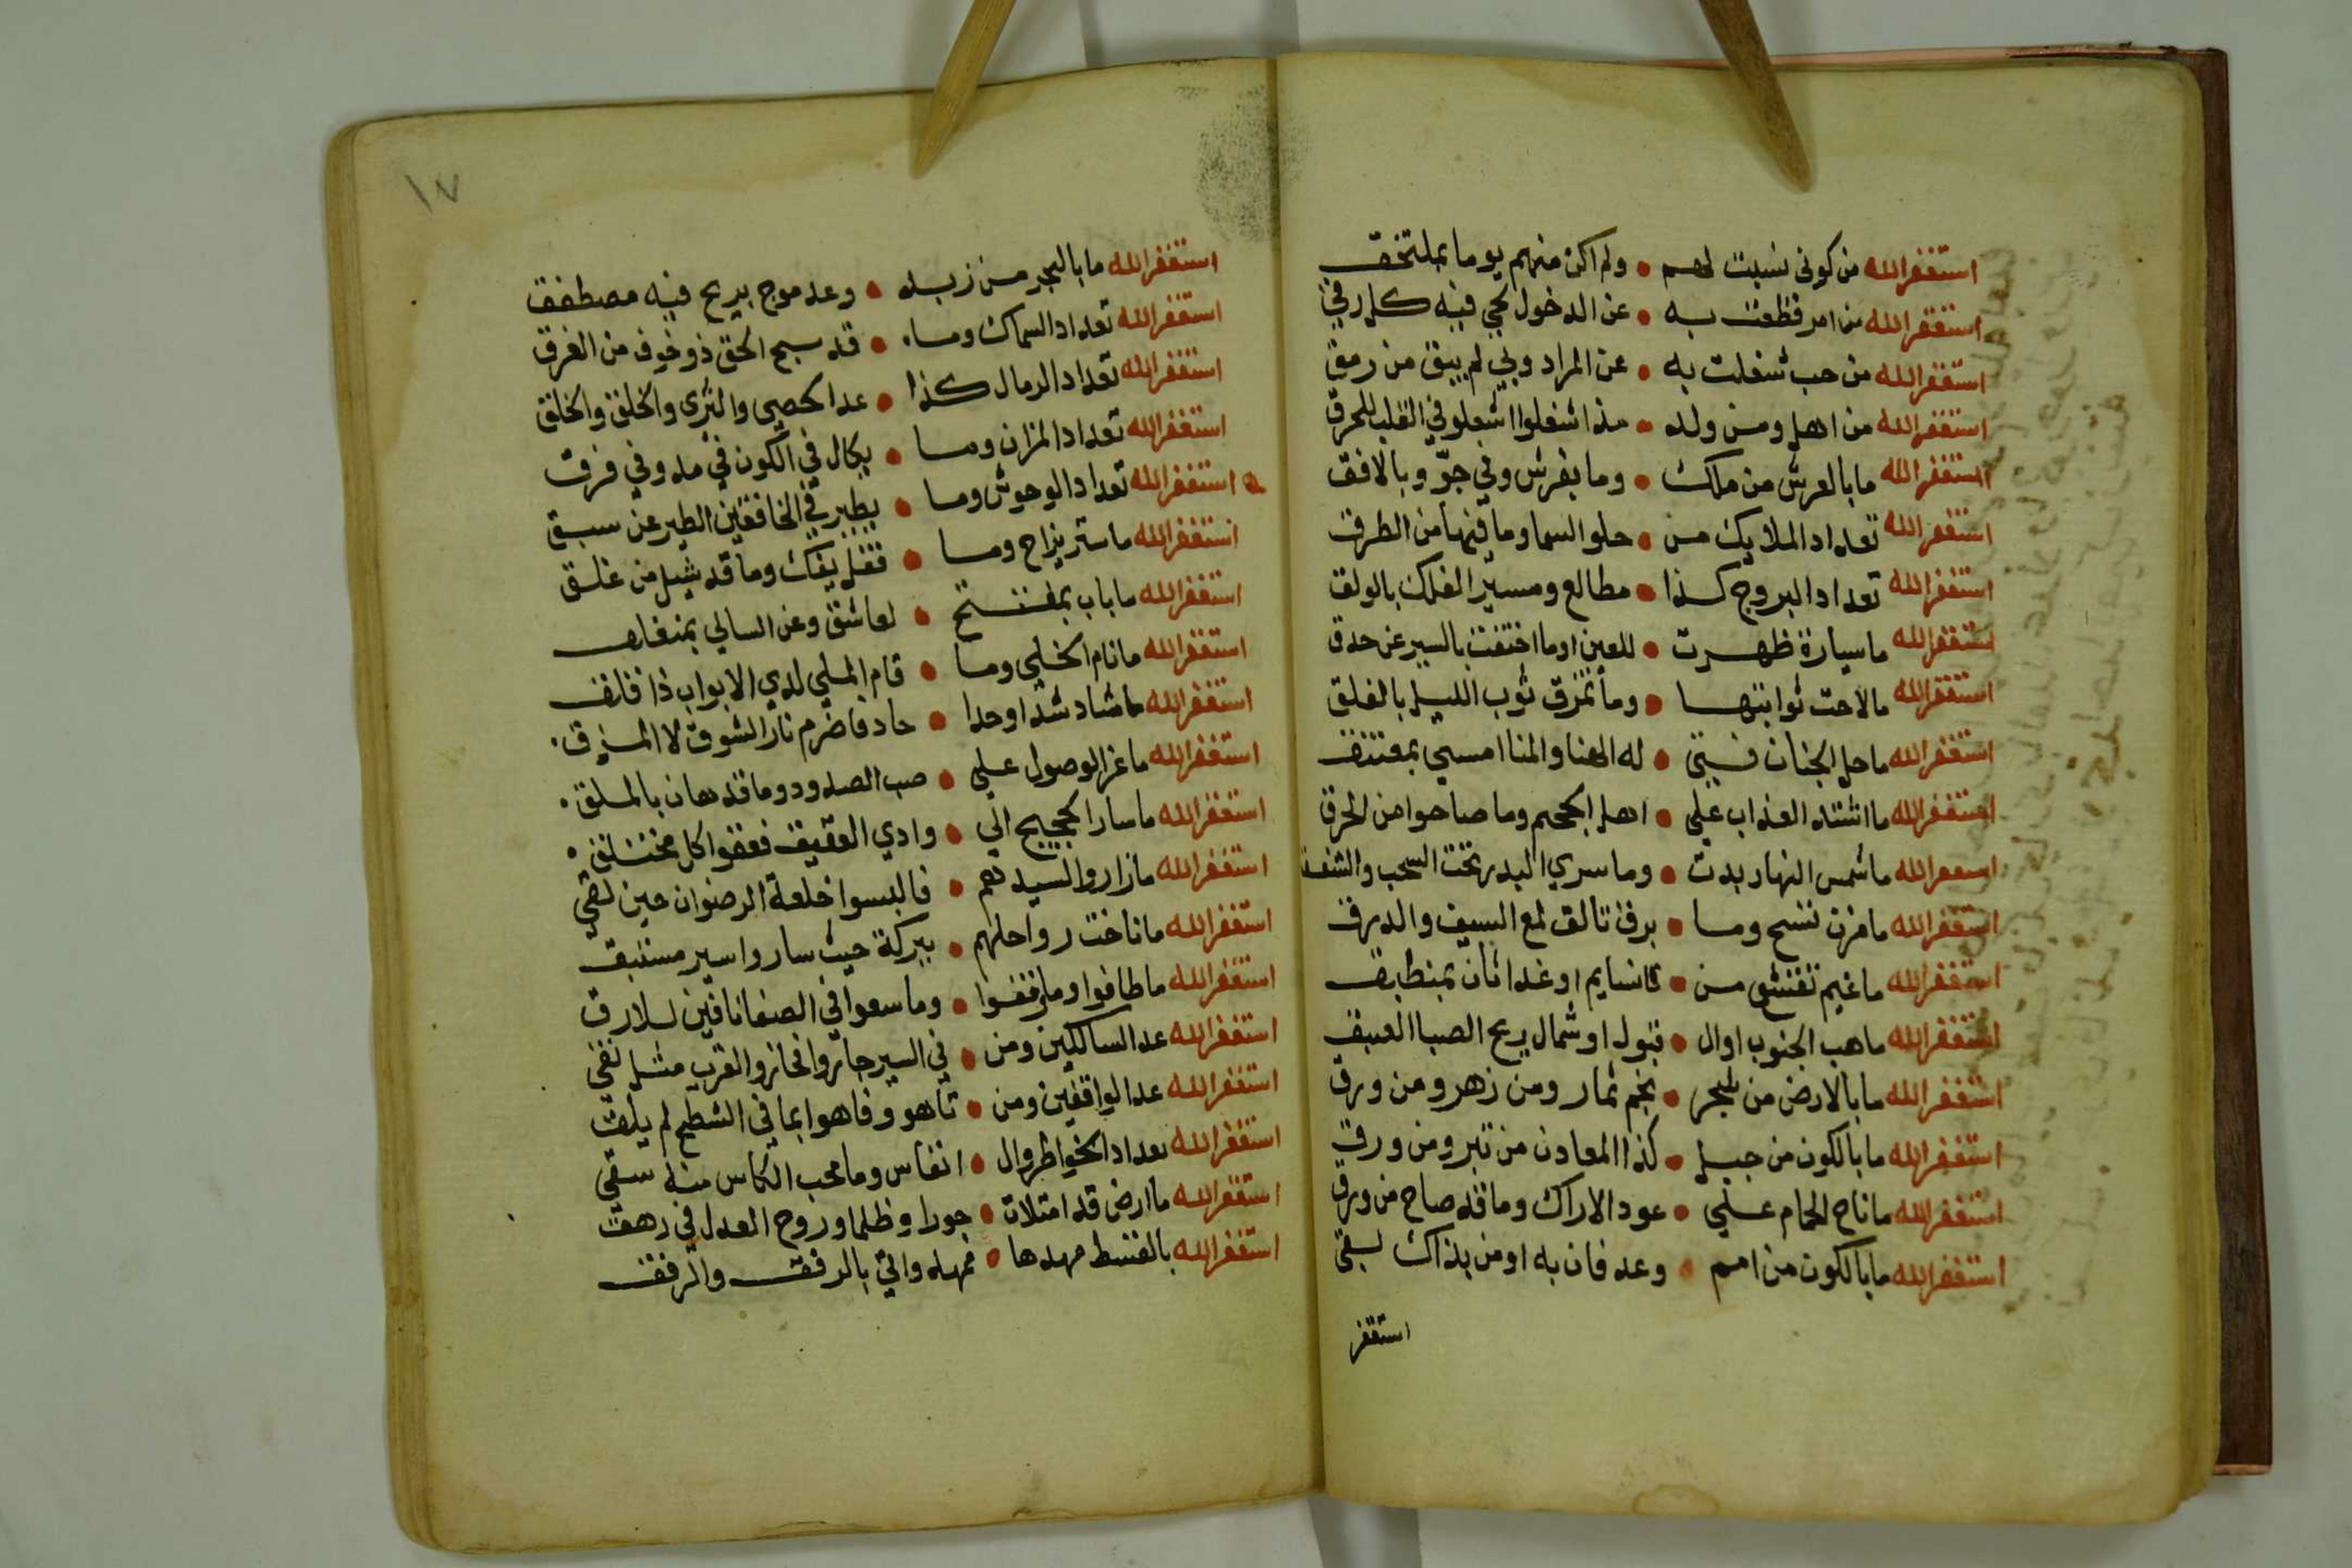 استغفر الله من كوني نسبت لهم • ولم اكن منهم يوما بملتحق
استغفر الله من امر قطعت به • عن الدخول لحي فيه كل رقي
استغفر الله من حب شغلت به • عن المراد وبي لم يبق من رمق
استغفر الله من اهل ومن ولد • مذ اشغلوا اشعلوا في القلب للحرق
استغفر الله ما بالعرش من ملك • وما بفرش وفي جوّ وبالافق
استغفر الله تعداد الملايك من • حلو السما وما فيها من الطرق
استغفر الله تعداد البروج كذا • مطالع ومسير الفلك بالولق
استغفر الله ما سيارة ظهرت • للعين او ما اختفت بالسير عن حدق
استغفر الله ما لاحت ثوابتها • وما تمزق ثوب الليل بالفلق
استغفر الله ما حل الجنان فتي • له الهنا والمنا امسي بمعتنق
استغفر الله ما اشتد العذاب علي • اهل الجحيم وما صاحوا من الحرق
استغفر الله ما شمس النهار بدت • وما سري البدر تحت السحب والشفق
استغفر الله ما مزن تسح وما • برق تالق لمع السيف والدرق
استغفر الله ما غيم تقشع من • نسايم او غدا ثان بمنطبق
استغفر الله ما هب الجنوب اوال • قبول او شمال ريح الصبا العبق
استغفر الله ما بالارض من شجر • نجم ثمار ومن زهر ومن ورق
استغفر الله ما بالكون من جبل • كذا المعادن من تبر ومن ورق
استغفر الله ما ناح الحمام علي • عود الاراك وما قد صاح من ورق
استغفر الله ما بالكون من امم • وعد فان به او من بذاك لبقي
استغفر
١٧
استغفر الله ما بالبحر من زبد • وعد موج بريح فيه مصطفق
استغفر الله تعداد السماك وما • قد سبح الحق ذو خوف من الغرق
استغفر الله تعداد الرمال كذا • عد الحصي والثري والخلق والخلق
استغفر الله تعداد المزان وما • يكال في الكون في مد وفي فرق
استغفر الله تعداد الوحوش وما • يطير في الخافقين الطير عن سبق
استغفر الله ما ستر يزاح وما • قفل يفك وما قد شيل من غلق
استغفر الله ما باب بمفتتح • لعاشق وعن السالي بمنغلق
استغفر الله ما نام الخلي وما • قام الملي لدي الابواب ذا قلق
استغفر الله ما شاد شدا وحدا • حاد فاضرم نار الشوق لا المزق
استغفر الله ما عز الوصول علي • صب الصدود وما قد هان بالملق
استغفر الله ما سار الحجيج الي • وادي العقيق فعفوا كل مختلق
استغفر الله ما زاروا لسيدهم • فالبسوا خلعة الرضوان حين لقي
استغفر الله ما ناخت رواحلهم • ببركة حيث ساروا سير مستبق
استغفر الله ما طافوا وما وقفوا • وما سعوا في الصفا نافين للارق
استغفر الله عد السالكين ومن • في السير جازوا فحازوا القرب مثل نقي
استغفر الله عد الواقفين ومن • تاهو وفاهوا بما في الشطح لم يلق
استغفر الله تعداد الخواطر وال • انفاس وما محب الكاس منه سقي
استغفر الله ما ارض قد امتلات • جورا وظلما وروح العدل في رهق
استغفر الله بالقسط مهدها • ممهد واتي بالرفق والرفق